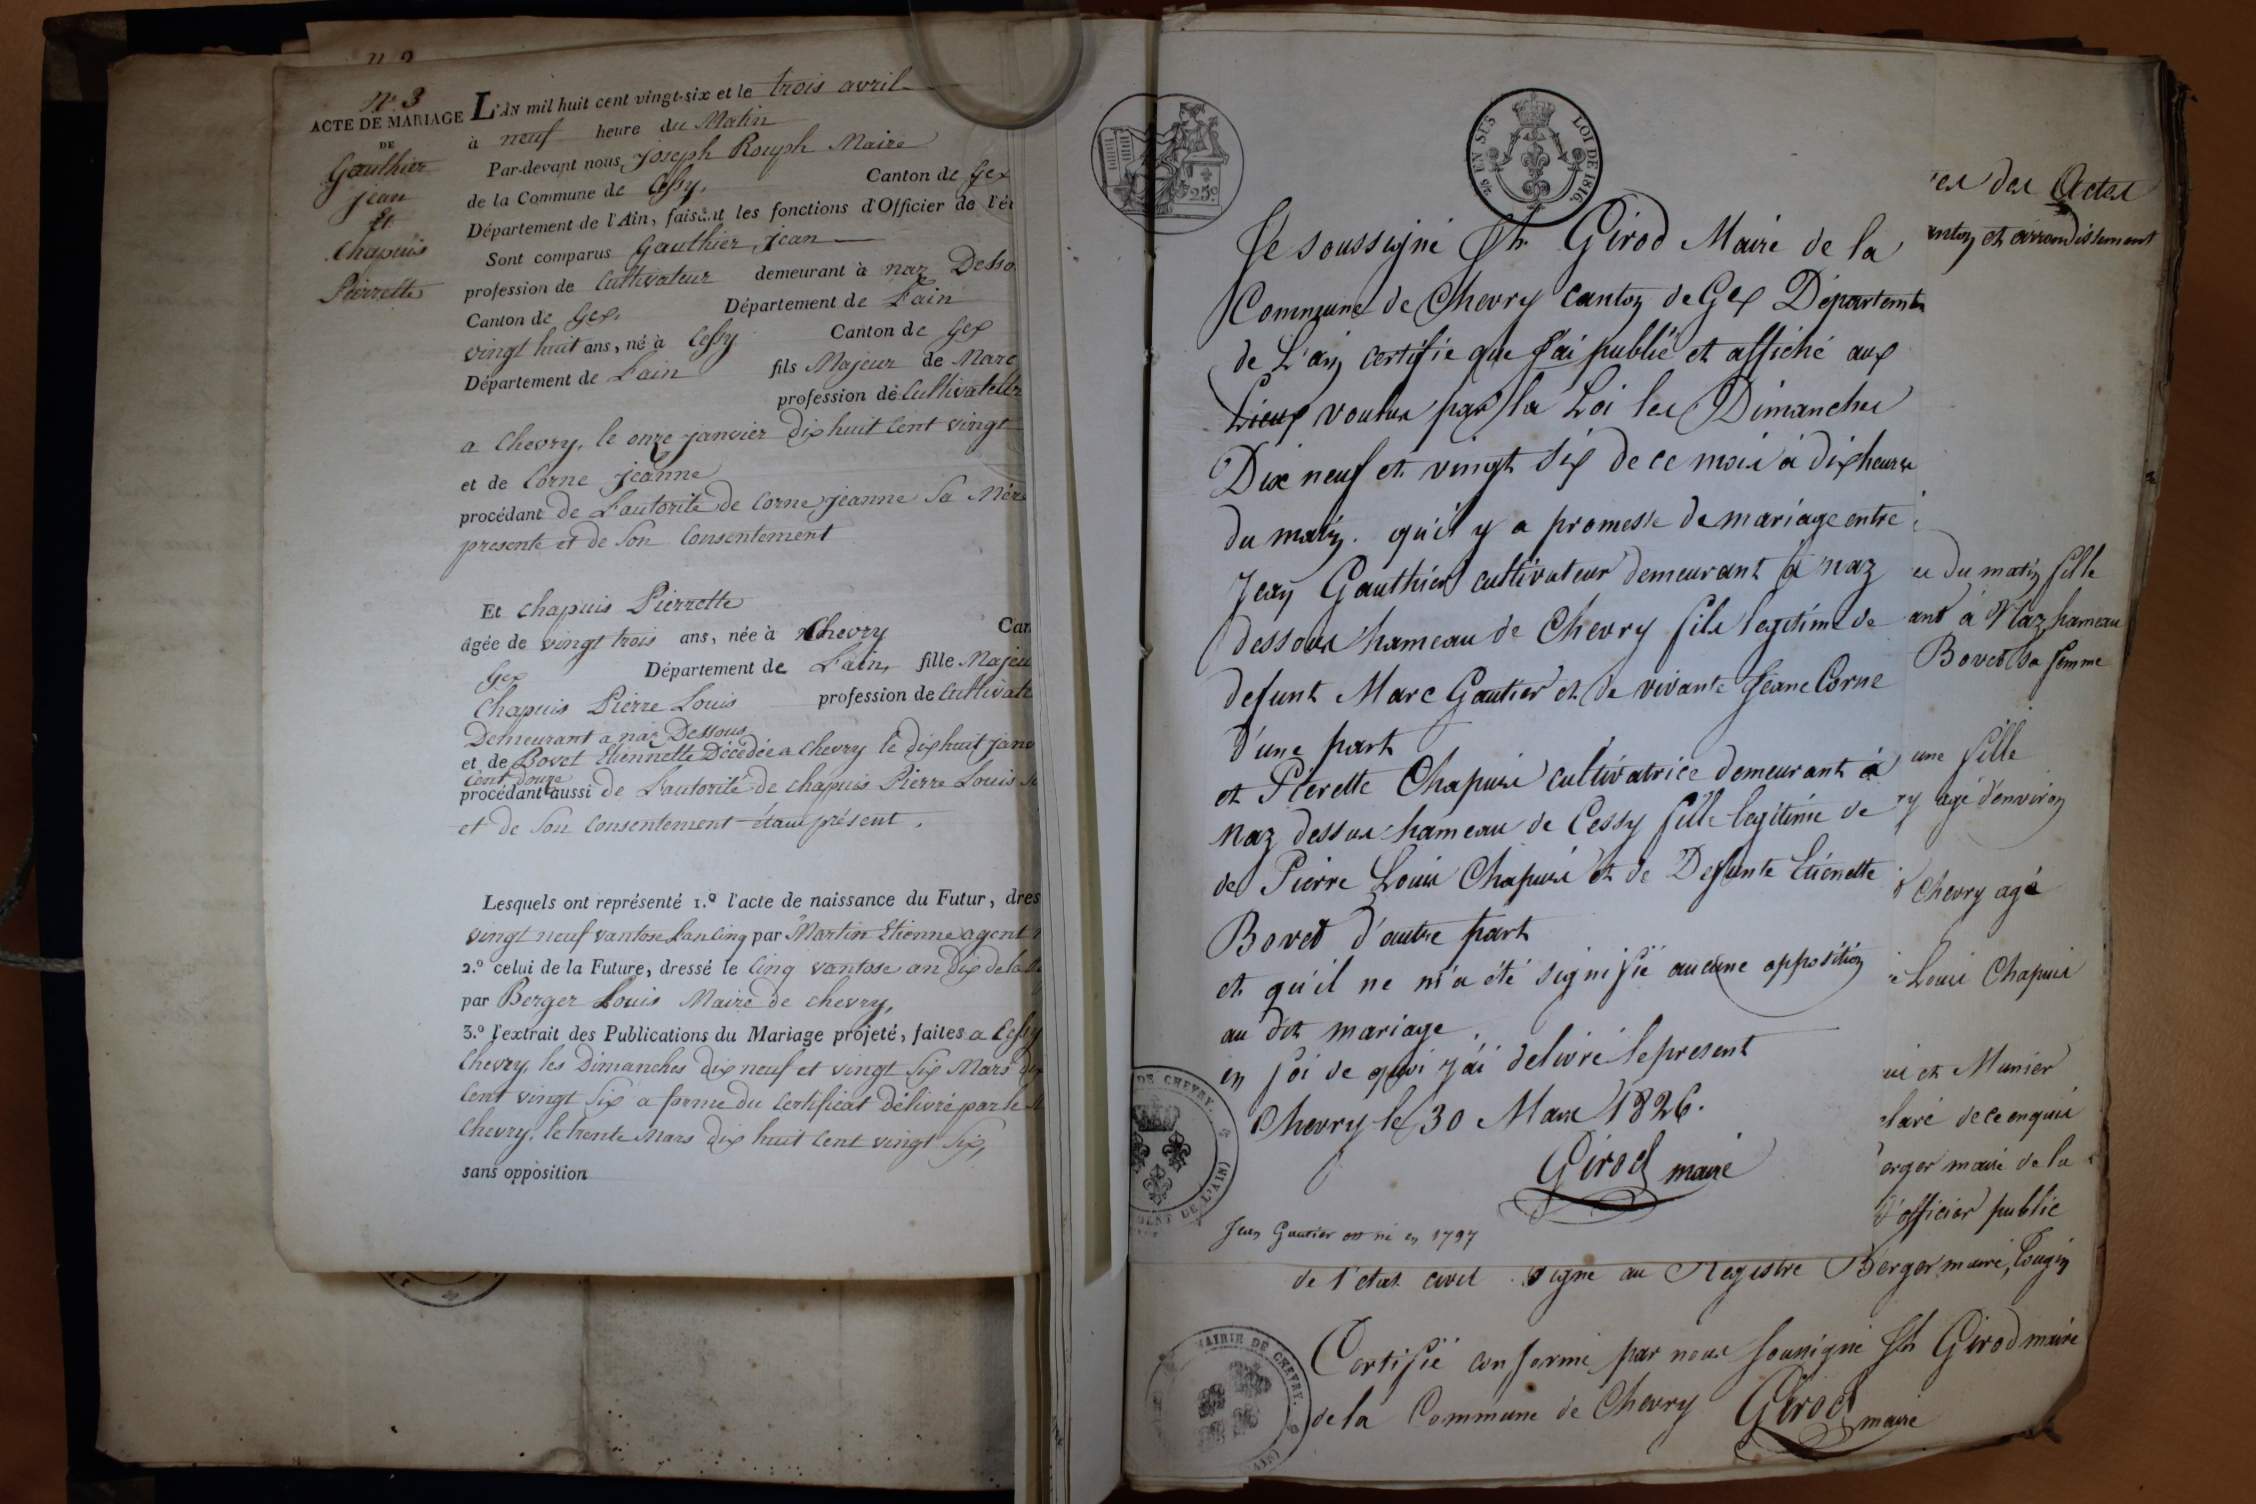 n.° 3
ACTE DE MARIAGE
DE
Gauthier
jean
Et
Chapuis
Pierrette
L'AN mil huit cent vingt-six et le trois avril
à neuf heure du Matin
Par-devant nous, joseph Rouph Maire
de la Commune de Cessy, Canton de Gex
Département de l'Ain, faisant les fonctions d'Officier de l'ét
Sont comparus Gauthier, jean
profession de Cultivateur demeurant à naz Desso
Canton de Gex. Département de L'ain
vingt huit ans, né à Cessy Canton de Gex
Département de L'ain fils Majeur de Marc
profession de Cultivateur
a Chevry, le onze janvier dix huit Cent vingt
et de Corne jeanne
procédant de L'autorité de Corne jeanne Sa Mère
presente et de Son Consentement
Et Chapuis Pierrette
âgée de vingt trois ans, née à Chevry Can
Gex Département de L'ain, fille Majeu
Chapuis Pierre Louis profession de Cultivate
Demeurant a naz Dessous
et de Bovet Etiennette Décédée a Chevry le dix huit janv
Cent douze
procédant aussi de L'autorité de chapuis Pierre Louis
et de Son Consentement étant présent.
Lesquels ont représenté 1.° l'acte de naissance du Futur, dres
vingt neuf vantose L'an Cinq par Martin Etienne agent
2.° celui de la Future, dressé le Cinq vantose an dix de la
par Berger Louis Maire de chevry,
3.° l'extrait des Publications du Mariage projeté, faites a Cessy
Chevry, les Dimanches dix neuf et vingt Six Mars dix
Cent vingt Six a forme du Certificat Délivré par le
Chevry, le trente Mars dix huit Cent vingt Six,
sans opposition
25c
EN SUS
LOI DE 1816.
Je soussigné Jh Girod Maire de la
Commune de Chevry canton de Gex Département
de L'ain certifie que J'ai publié et affiché aux
Lieux voulus par la Loi les Dimanches
Dix neuf et vingt Six de ce mois à dix heures
du matin. qu'il y a promesse de mariage entre
Jean Gauthier cultivateur demeurant à naz
dessous hameau de Chevry fils legitime de
defunt Marc Gautier et de vivante Jeane Corne
d'une part
et Pierette Chapuis cultivatrice demeurant à
Naz dessus hameau de Cessy fille legitime de
de Pierre Louis Chapuis et de Defunte Etienette
Bovet d'autre part
et qu'il ne m'a été signifié aucune opposition
au dit mariage.
en foi de quoi j'ai delivré le present
Chevry le 30 Mars 1826.
Girod maire
DE CHEVRY.
(AIN)
Jean Gautier est né en 1797
des Actes
canton et arrondissement
du matin fille
ant à Naz hameau
Bovet sa femme
une fille
agé d'environ
Chevry agé
Louis Chapuis
et Munier
claré de ce enquis
erger maire de la
d'officier public
de l'état civil. Signé au Registre Berger maire, Cougin
Certifié conforme par nous soussigné Jh Girod maire
de la Commune de Chevry Girod maire
MAIRIE DE CHEVRY.